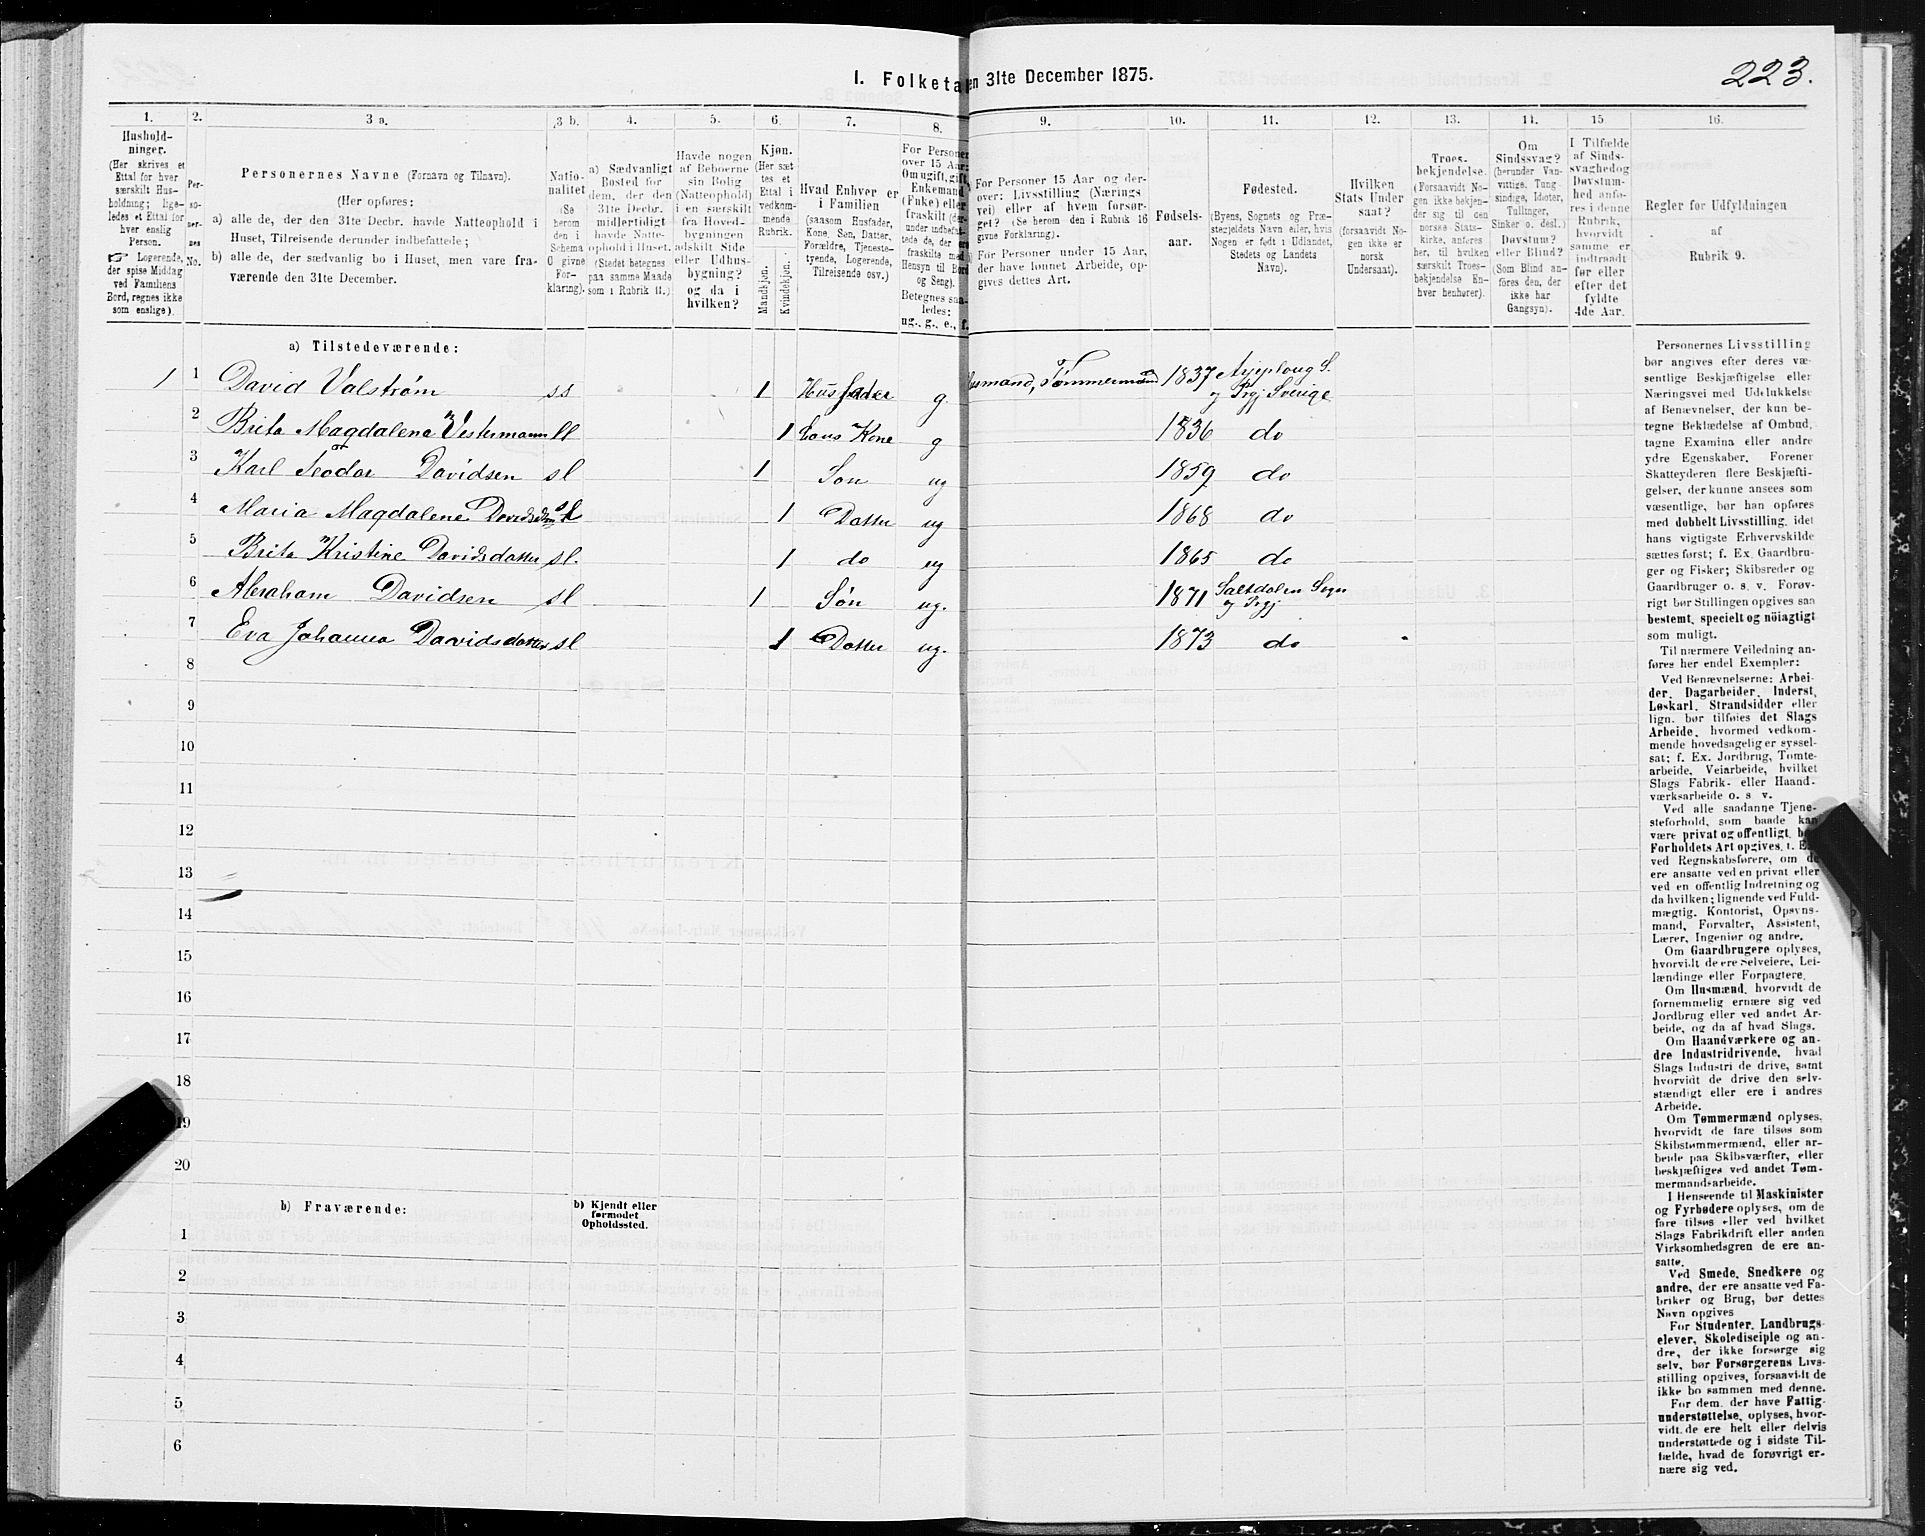 223.
I. Folketa en 31te December 1875.
1.
Hushold-
ninger.
(Her skrives et
Ettal for hver
særskilt Hus-
holdning; lige-
ledes et Ettal for
hver enslig
Person.
☞ Logerende,
der spise Middag
ved Familiens
Bord, regnes ikke
som enslige).
2.
Per-
so-
ner-
nes
No.
3 a.
Personernes Navne (Fornavn og Tilnavn).
(Her opføres:
a) alle de, der den 31te Decbr. havde Natteophold i
Huset, Tilreisende derunder indbefattede;
b) alle de, der sædvanlig bo i Huset, men vare fra-
værende den 31te December.
3 b.
Natio-
nalitet
(Se
herom
den i
Schema
O givne
For-
klaring).
4.
a) Sædvanligt
Bosted for
dem, der den
31te Decbr.
midlertidigt
havde Natte-
ophold i Huset.
(Stedet betegnes
paa samme Maade
som i Rubrik 11.)
5.
Havde nogen
af Beboerne
sin Bolig
(Natteophold)
i en særskilt
fra Hoved-
bygningen
adskilt Side
eller Udhus-
bygning?
og da i
hvilken?
6.
Kjøn.
(Her sæt-
tes et
Ettal i
vedkom-
mende
Rubrik.
Mandkjøn.
Kvindekjøn.
7.
Hvad Enhver er
i Familien
(saasom Husfader,
Kone, Søn, Datter,
Forældre, Tjeneste-
tyende, Logerende,
Tilreisende osv.)
8.
For Personer
over 15 Aar:
Om ugift, gift,
Enkemand
(Enke) eller
fraskilt (der-
under indbefat-
tede de, der ere
fraskilte med
Hensyn til Bord
og Seng).
Betegnes saa-
ledes:
ug., g., e., f.
9.
For Personer 15 Aar og der-
over: Livsstilling (Nærings-
vei) eller af hvem forsør-
get? (Se herom den i Rubrik 16
givne Forklaring).
For Personer under 15 Aar,
der have lønnet Arbeide, op-
gives dettes Art.
10.
Fødsels-
aar.
11.
Fødested.
(Byens, Sognets og Præ-
stegjeldets Navn eller, hvis
Nogen er født i Udlandet,
Stedets og Landets
Navn).
12.
Hvilken
Stats Under
saat?
(forsaavidt No-
gen ikke er
norsk
Undersaat).
13.
Troes-
bekjendelse.
(Forsaavidt No-
gen ikke bekjen-
der sig til den
norske Stats-
kirke, anføres
her, til hvilken
særskilt Troes-
bekjendelse En-
hver henhører).
14.
Om
Sindssvag?
(herunder Van-
vittige, Tung
sindige, Idioter,
Tullinger,
Sinker o. desl.)
Døvstum?
eller Blind?
(Som Blind an-
føres den, der
ikke har
Gangsyn).
15
I Tilfælde
af Sinds-
svaghedog
Døvstum-
hed anfø-
res i denne
Rubrik,
hvorvidt
samme er
indtraadt
før eller
efter det
fyldte
4de Aar.
16.
Regler for Udfyldningen
af
Rubrik 9.
a) Tilstedeværende:
1 1 David Valstrøm ss 1 Husfader g Tømmermand 1837 Arjeploug S.
og Prgj Sverige
2 Brita Magdalena Vestermann ll 1 hans Kone g 1836 do
3 Karl Teodor Davidsen sl 1 Søn ug 1859 do
4 Maria Magdalene sl 1 Datter ug 1868 do
5 Brita Kristine Davidsdatter sl. 1 do ug 1865 do
6 Abraham Davidsen sl 1 Søn ug. 1871 Saltdalen Sogn
og Prgj
7 Eva Johanna Davidsdatter sl 1 Datter ug. 1873 do
8
9
10
11
12
13
14
15
16
17
18
19
20
b) Fraværende:
b) Kjendt eller
formodet
Opholdssted.
1
2
3
4
5
6
Personernes Livsstilling
bør angives efter deres væ-
sentlige Beskjæftigelse eller
Næringsvei med Udelukkelse
af Benævnelser, der kun be-
tegne Beklædelse af Ombud,
tagne Examina eller andre
ydre Egenskaber. Forener
Skatteyderen flere Beskjæfti-
gelser, der kunne ansees som
væsentlige, bør han opføres
med dobbelt Livsstilling, idet
hans vigtigste Erhvervskilde
sættes først; f. Ex. Gaardbru-
ger og Fisker; Skibsreder og
Gaardbruger o. s. v. Forøv-
rigt bør Stillingen opgives saa
bestemt, specielt og nöiagtigt
som muligt.
Til nærmere Veiledning an-
føres her endel Exempler:
Ved Benævnelserne: Arbei-
der, Dagarbeider, Inderst,
Løskarl, Strandsidder eller
lign. bør tilføies det Slags
Arbeide, hvormed vedkom-
mende hovedsagelig er syssel-
sat; f. Ex. Jordbrug, Tomte-
arbeide, Veiarbeide, hvilket
Slags Fabrik- eller Haand-
værksarbeide o. s v.
Ved alle saadanne Tjene-
steforhold, som baade kan
være privat og offentligt, bør
Forholdets Art opgives, f. Ex.
ved Regnskabsførere, om de
ere ansatte ved en privat eller
ved en offentlig Indretning og
da hvilken; lignende ved Fuld-
mægtig, Kontorist, Opsyns-
mand, Forvalter, Assistent,
Lærer, Ingeniør og andre.
Om Gaardbrugere oplyses,
hvorvidt de ere Selveiere, Lei-
lændinge eller Forpagtere.
Om Husmænd, hvorvidt de
fornemmelig ernære sig ved
Jordbrug eller ved andet Ar-
beide, og da af hvad Slags.
Om Haandværkere og an-
dre Industridrivende, hvad
Slags Industri de drive, samt
hvorvidt de drive den selv-
stændigt eller ere i andres
Arbeide.
Om Tømmermænd oplyses,
hvorvidt de fare tilsøs som
Skibstømmermænd, eller ar-
beide paa Skibsværfter, eller
beskjæftiges ved andet Tøm-
mermandsarbeide.
I Henseende til Maskinister
og Fyrbødere oplyses, om de
fare tilsøs eller ved hvilket
Slags Fabrikdrift eller anden
Virksomhedsgren de ere an-
satte.
Ved Smede, Snedkere og
andre, der ere ansatte ved Fa-
briker og Brug, bør dettes
Navn opgives
For Studenter, Landbrugs-
elever, Skoledisciple og an-
dre, der ikke forsørge sig
selv, bør Forsørgerens Livs-
stilling opgives, forsaavidt de
ikke bo sammen med denne.
For dem, der have Fattig-
understøttelse, oplyses, hvor-
vidt de ere helt eller delvis
understøttede og i sidste Til-
fælde, hvad de forøvrigt er-
nære sig ved.